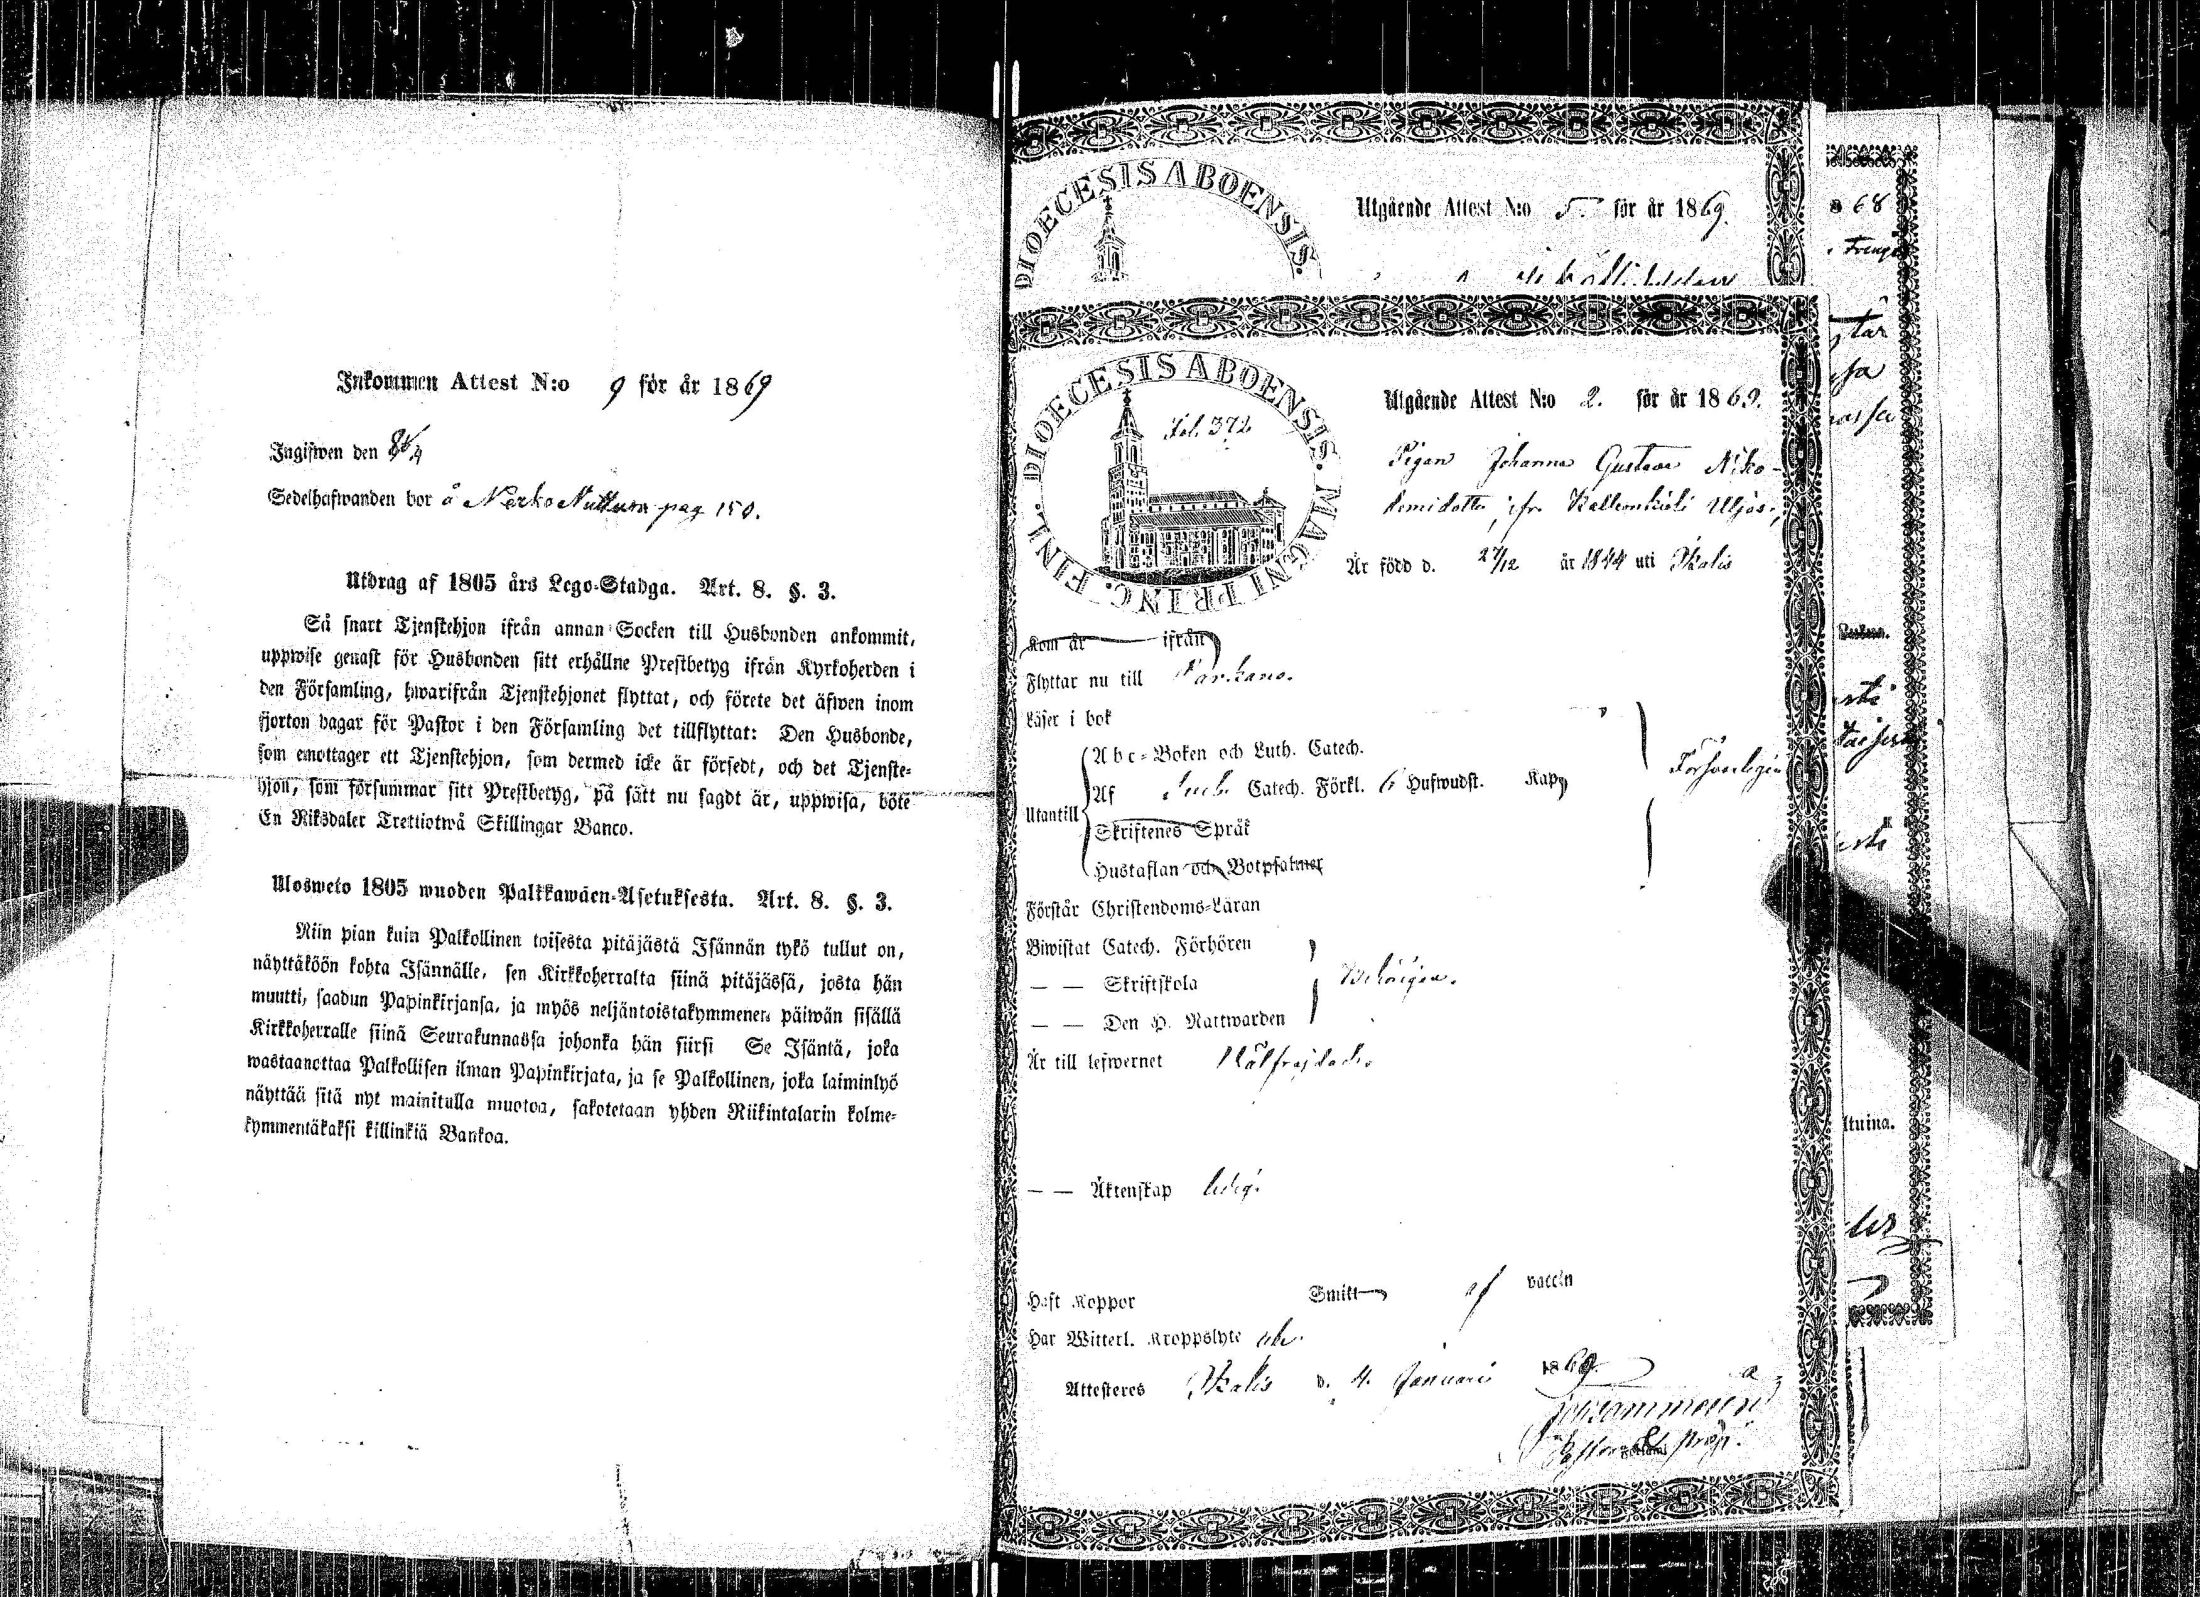 Inkommen Attest N:o 9 för år 1869
Ingifwen den
Sedelhafwanden bor å Nerko pag 150.
Utdrag af 1805 års Lego-Stadga. Art. 8. §. 3.
Så snart Tjenstehjon ifrån annan Socken till Husbonden ankommit,
uppwise genast för Husbonden sitt erhållne Prestbetyg ifrån Kyrkoherden i
den Församling, hwarifrån Tjenstehjonet flyttat, och förete det äfwen inom
fjorton dagar för Pastor i den Församling det tillflyttat: Den Husbonde,
som emottager ett Tjenstehjon, som dermed icke är försedt, och det Tjenste-
hjon, som försummar sitt Prestbetyg, på sätt nu sagdt är, uppwisa, böte
En Riksdaler Trettiotwå Skillingar Banco.
Ulosweto 1805 wuoden Palkkawäen-Asetuksesta. Art. 8. §. 3.
Niin pian kuin Palkollinen toisesta pitäjästä Isännän tykö tullut on,
näyttäköön kohta Isännälle, sen Kirkkoherralta siinä pitäjässä, josta hän
muutti, saadun Papinkirjansa, ja myös neljäntoistakymmenen päiwän sisällä
Kirkkoherralle siinä Seurakunnassa johonka hän siirsi Se Isäntä, joka
wastaanottaa Palkollisen ilman Papinkirjata, ja se Palkollinen, joka laiminlyö
näyttää sitä nyt mainitulla muotoa, sakotetaan yhden Riikintalarin kolme-
kymmentäkaksi killinkiä Bankoa.
DIOECESIS ABOENSIS.
Utgående Attest N:o 5. för år 1869.
DIOECESIS ABOENSIS. MAGNI PRINC. FINL.
Fol. 372
Utgående Attest N:o 2. för år 1869.
Pigan Johanna Gustava Niko-
demidotter, ifr. Uljos.,
Är född d. 27/12 år 1844 uti Ikalis
Kom år ifrån
Flyttar nu till Parkano.
Läser i bok
Abc-Boken och Luth. Catech.
Utantill Af Luth. Catech. Förkl. 6 Hufwudst. Kap
Försvarligen
Skriftenes Språk
Hustaflan och Botpsalmer
Förstår Christendoms-Läran
Biwistat Catech. Förhören
— — Skriftskola
Behörigen.
— — Den H. Nattwarden
Är till lefwernet Wälfrejdad.
— — Äktenskap ledig.
Haft Koppor Smitt af vaccin
Har Witterl. Kroppslyte
Attesteres Ikalis d. 4. Januari 1869.
68
ltuina.